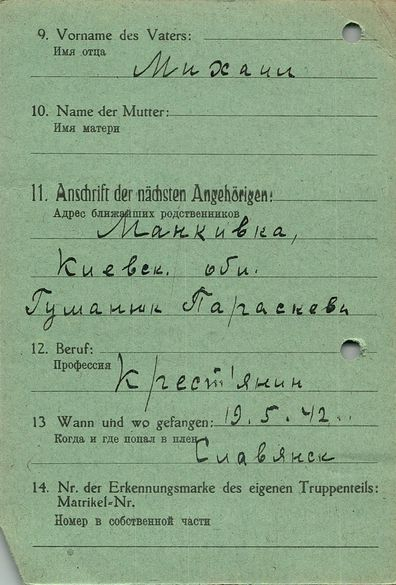 9. Vorname des Vaters:
Имя отца
Михаил
10. Name der Mutter:
Имя матери
11. Anschrift der nächsten Angehörigen:
Адрес ближайших родственников
Манкивка,
Киевск. обл.
Гуманюк Параскева
12. Beruf:
Профессия
Крест'янин
13 Wann und wo gefangen: 19.5.42..
Когда и где попал в плен
Славянск
14. Nr. der Erkennungsmarke des eigenen Truppenteils:
Matrikel-Nr.
Номер в собственной части